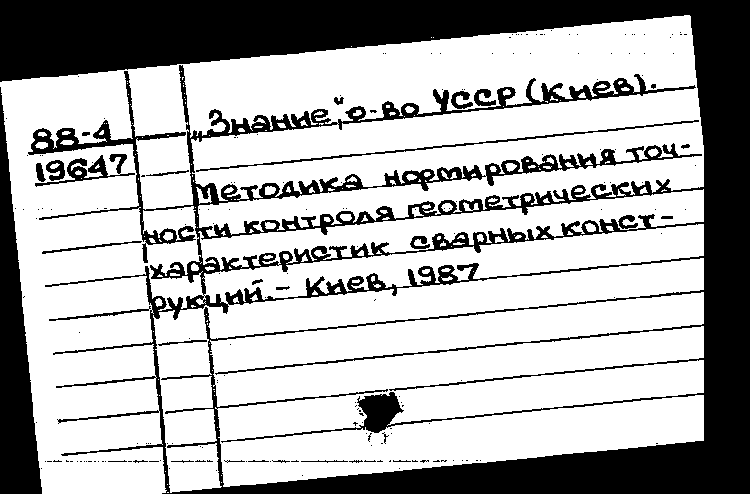 88-4
19647
„Знание", о-во УССР (Киев).
Методика нормирования точ-
ности контроля геометрических
характеристик сварных конст-
рукций. - Киев, 1987